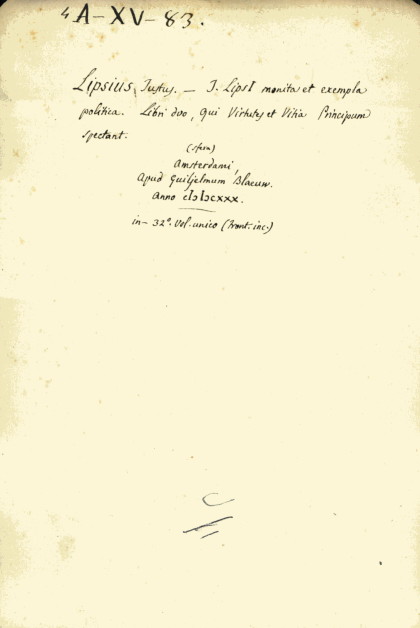 4 A-XV-83.
Lipsius, Justus. — J. LipsI monita et exempla
politica. Libri duo, qui Virtutes et Vitia Principum
spectant.
(stem)
Amsterdami,
Apud Guiljelmum Blaeuw.
Anno cIɔ Iɔcxxx.
in-32º. vol. unico (front. inc.)